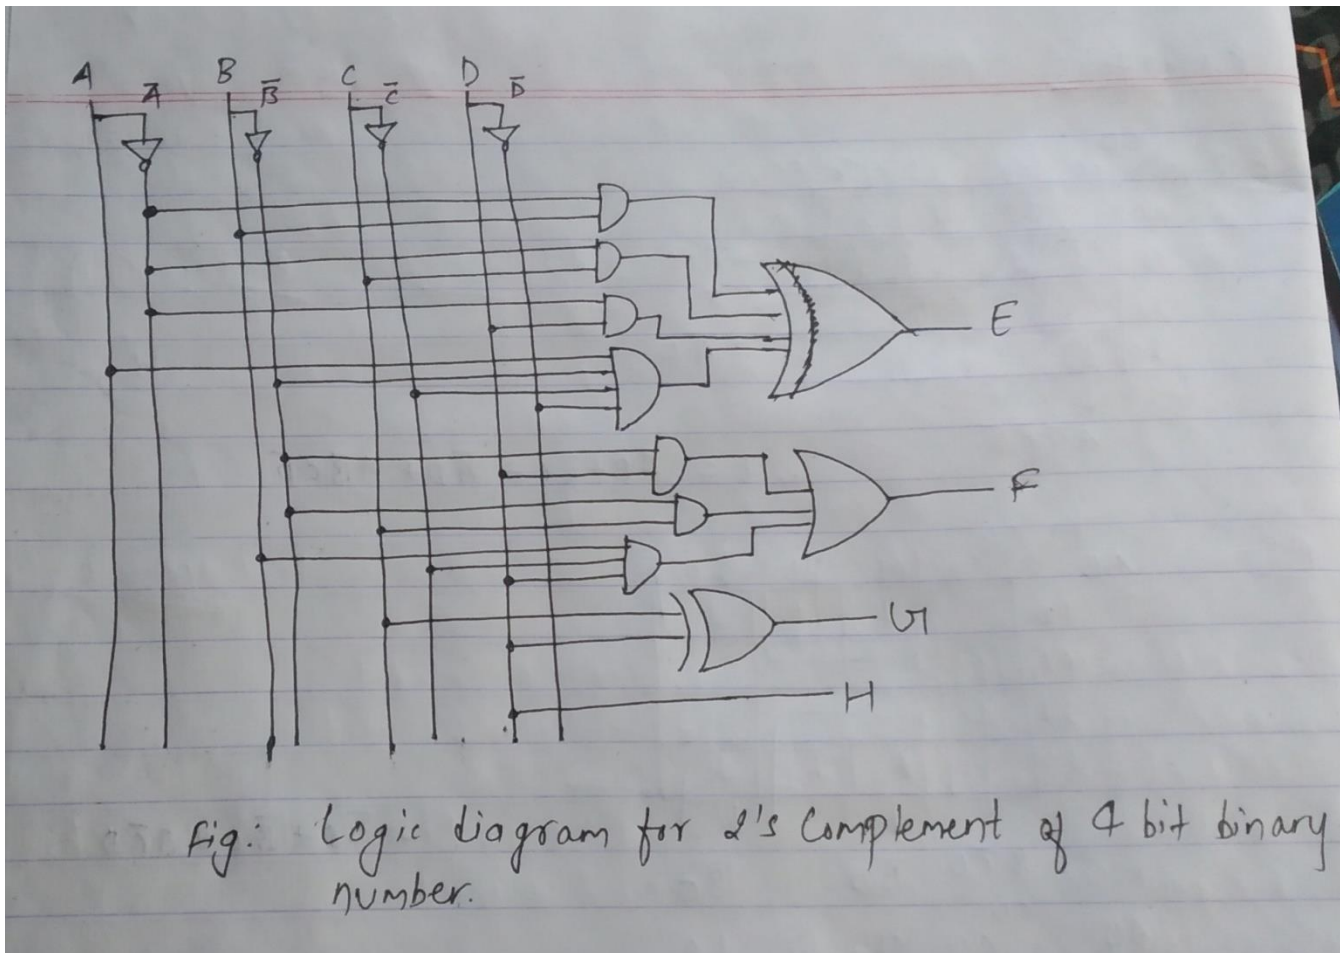 A A̅ B B̅ C C̅ D D̅
E
F
G
H
Fig: Logic diagram for 2's Complement of 4 bit binary
number.